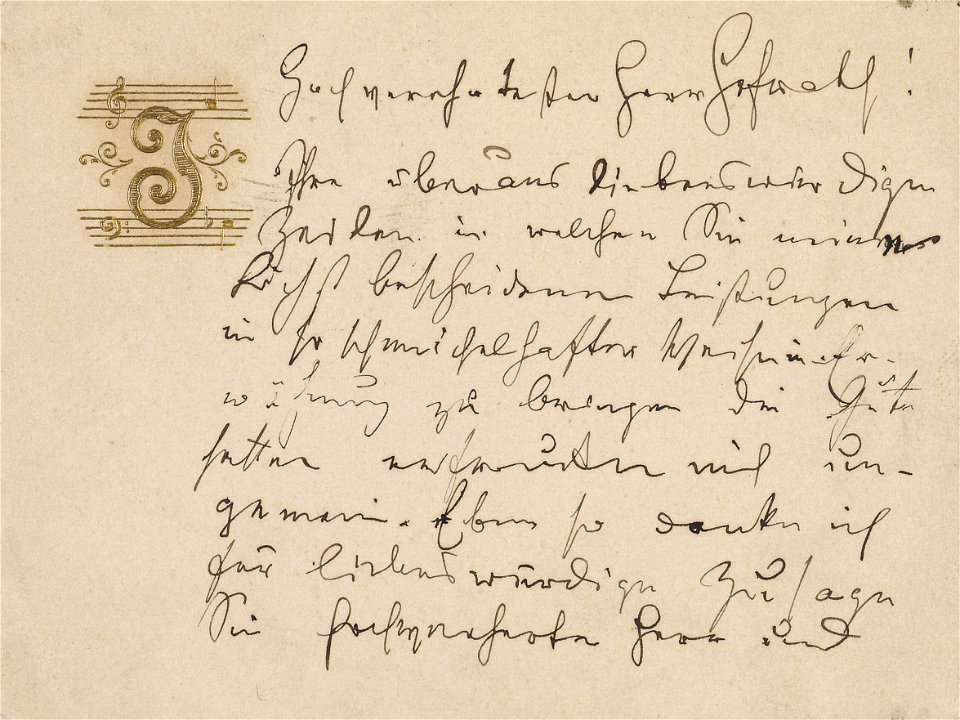 J
Hochverehrtester Herr Hofrath!
Ihre überaus liebenswürdigen
Zeilen in welchen Sie meiner
höchst bescheidenen Leistungen
in so schmeichelhafter Weise in Er-
wähnung zu bringen die Güte
hatten erfreuten mich un-
gemein. Eben so danke ich
für liebenswürdige Zusage
Sie hochverehrter Herr und